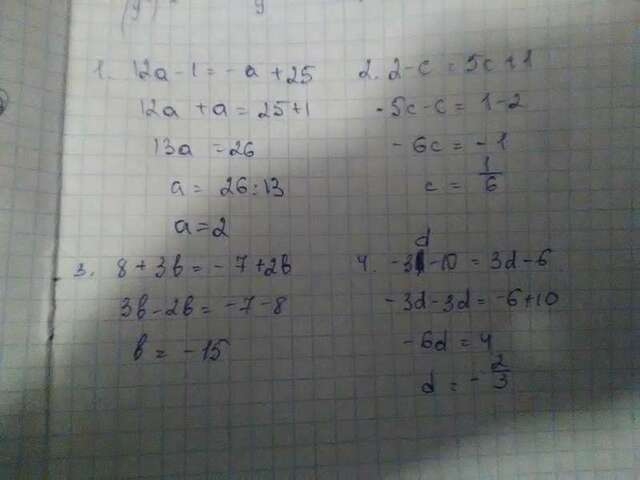 1. 12a - 1 = - a + 25
12a + a = 25+1
13a = 26
a = 26:13
a = 2
2. 2 - c = 5c + 1
- 5c - c = 1 - 2
- 6c = - 1
c = 1/6
3. 8 + 3b = - 7 + 2b
3b - 2b = - 7 - 8
b = - 15
4. - 3d - 10 = 3d - 6
- 3d - 3d = - 6 + 10
- 6d = 4
d = - 2/3